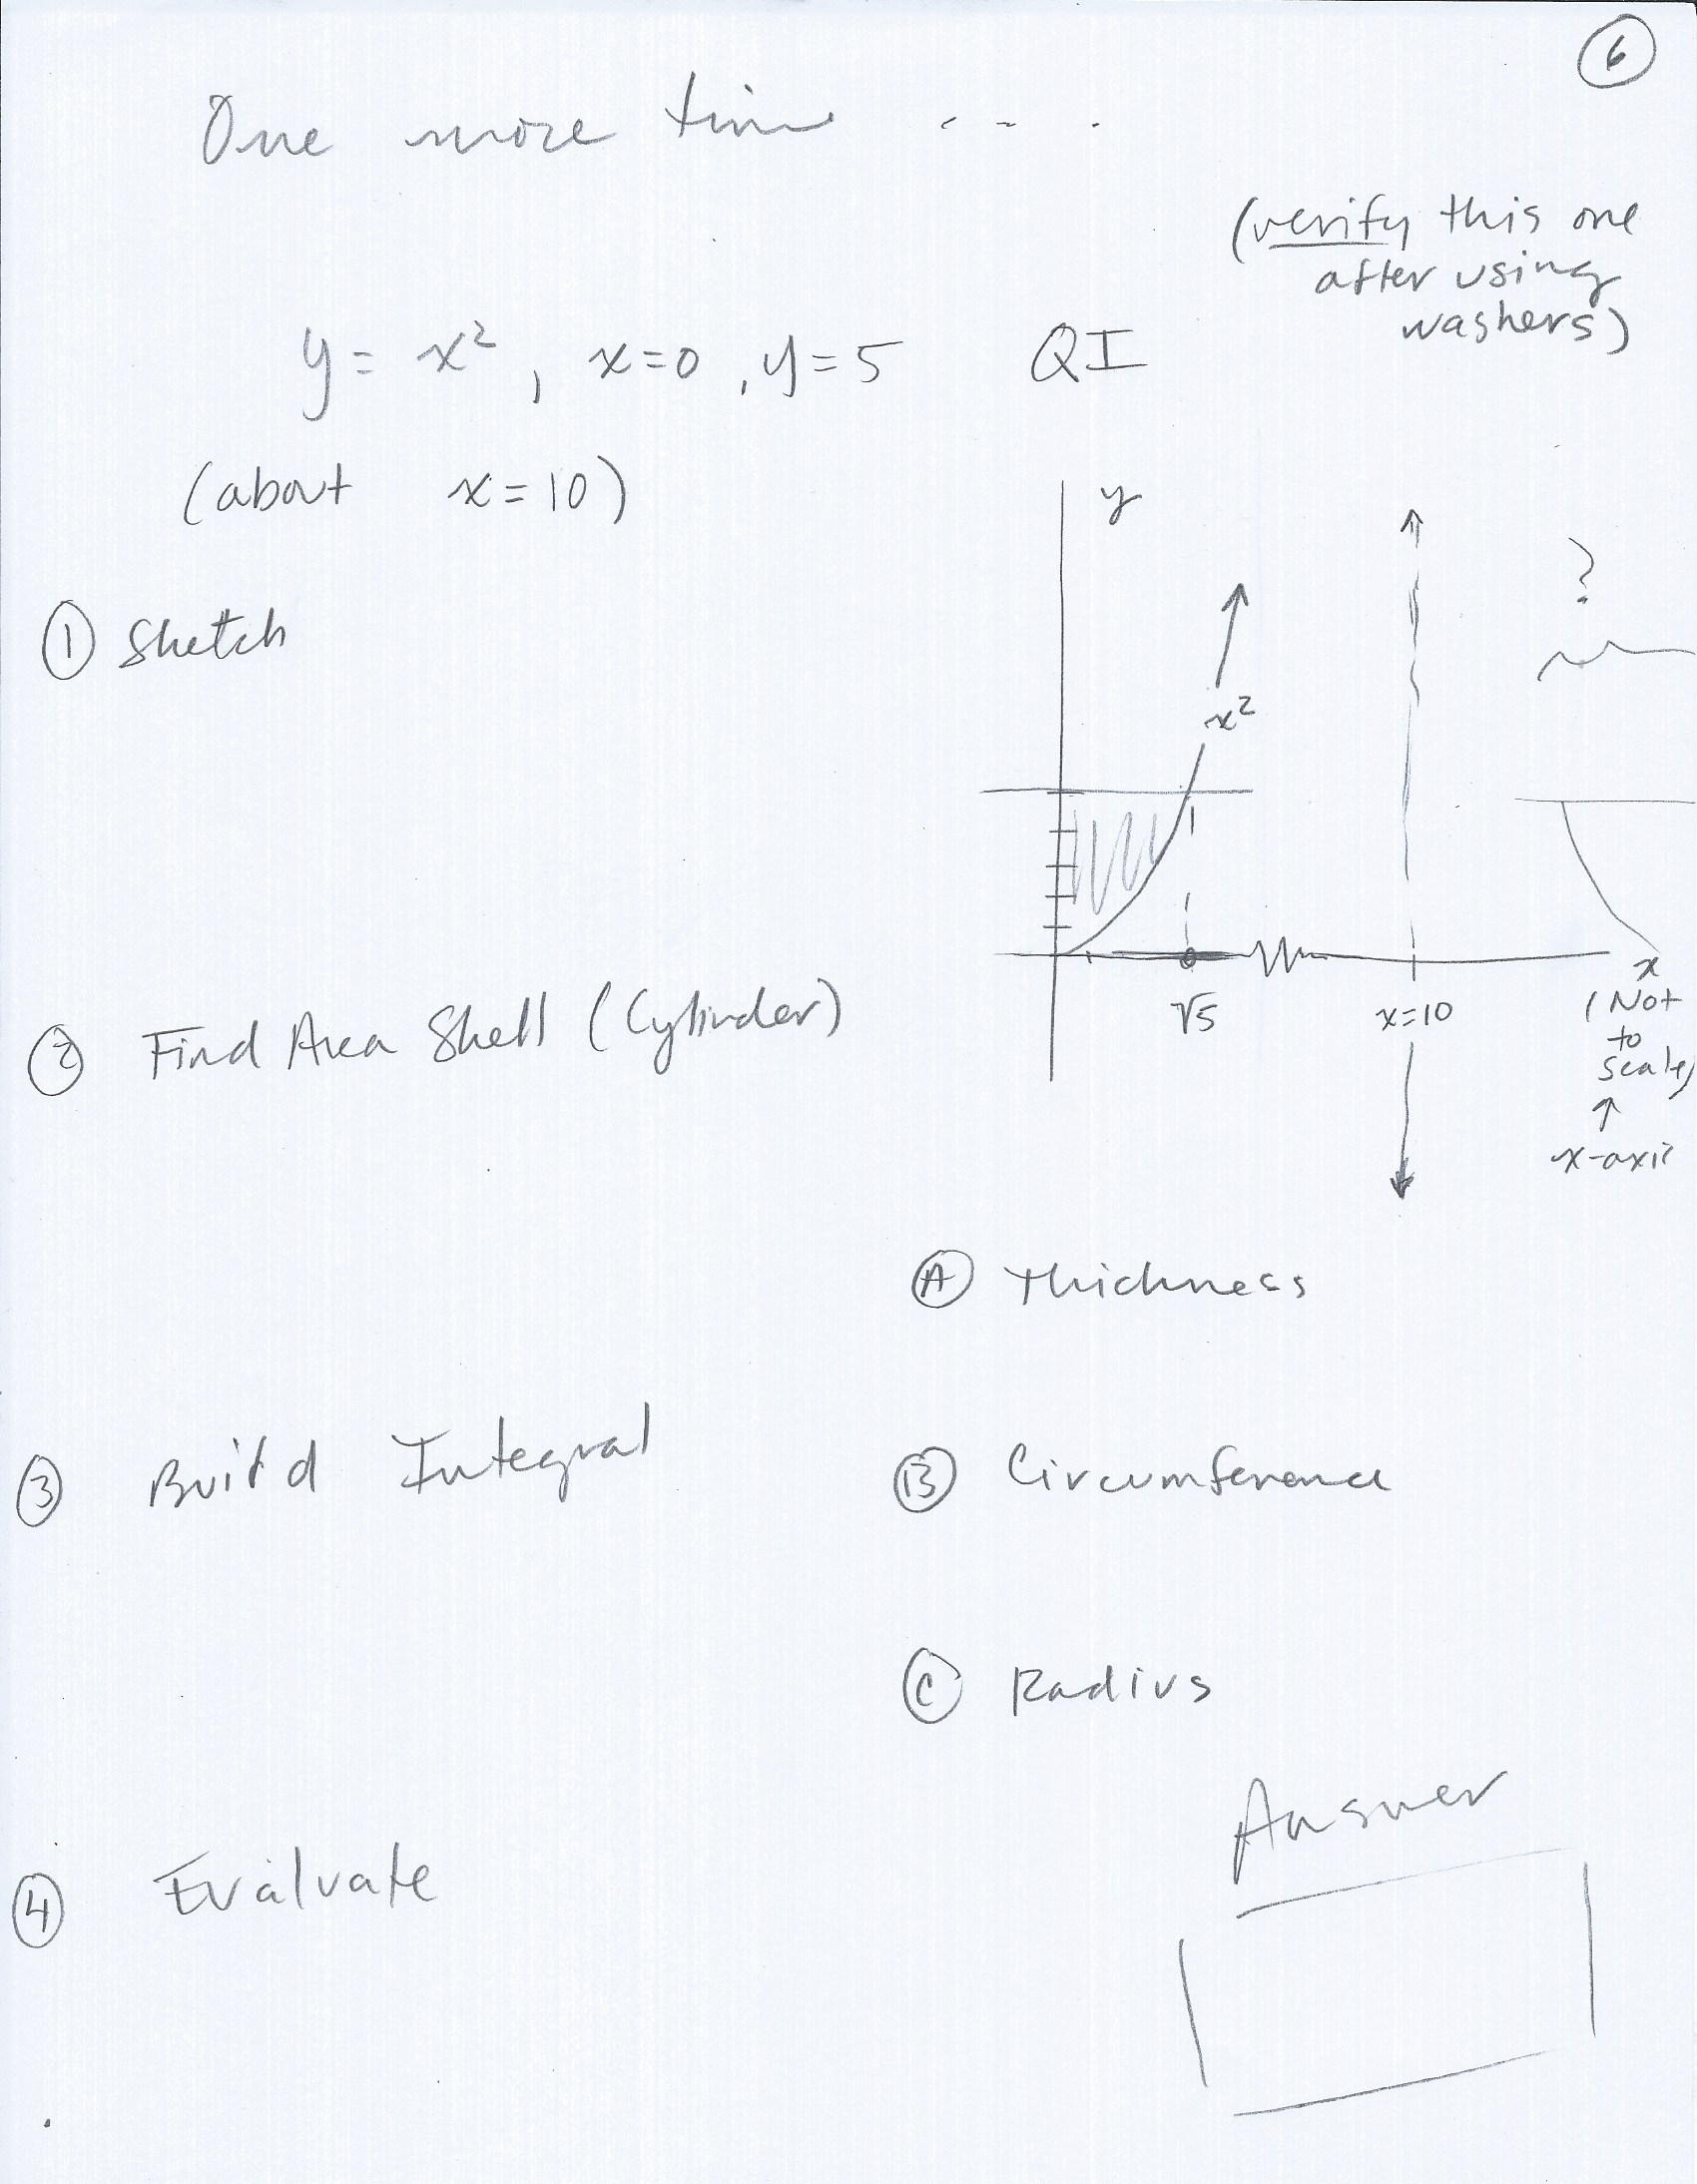 6
One more time ....
(verify this one
after using
washers)
y = x², x=0, y=5 QI
(about x=10)
y
?
① Sketch
x²
√5
x=10
x
(Not
to
scale)
↑
x-axis
② Find Area Shell (Cylinder)
Ⓐ Thickness
③ Build Integral
Ⓑ Circumference
Ⓒ Radius
Answer
④ Evaluate